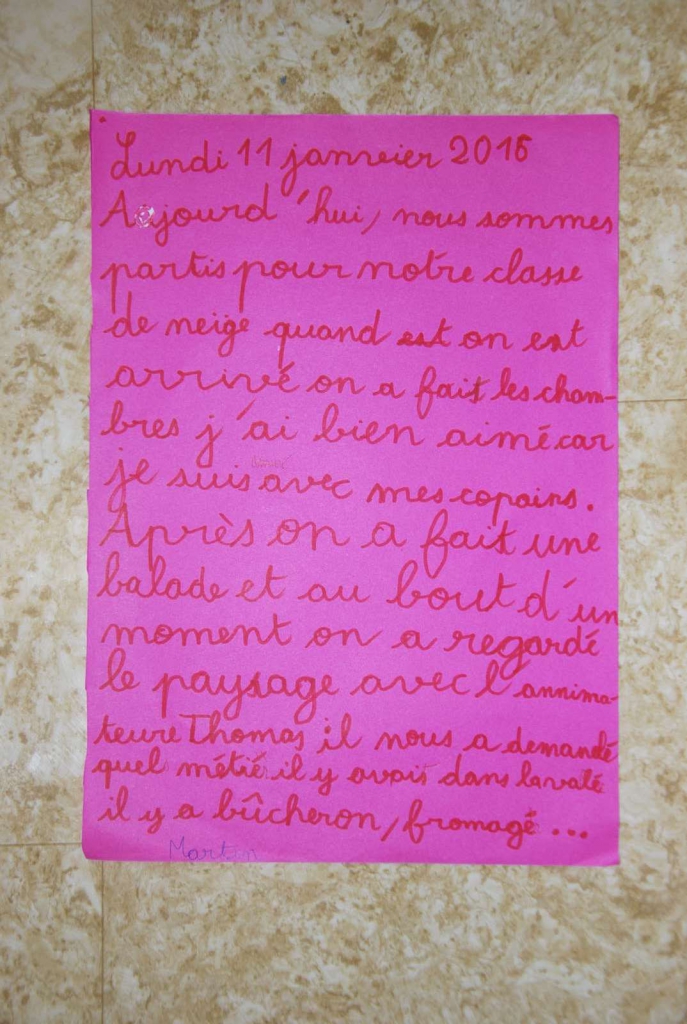 Lundi 11 janvier 2016
Aujourd'hui, nous sommes
partis pour notre classe
de neige quand est on est
arrivé on a fait les cham-
bres j'ai bien aimé car
je suis avec mes copains.
Après on a fait une
balade et au bout d'un
moment on a regardé
le paysage avec l'annima-
teure Thomas il nous a demandé
quel métié il y avais dans la valé
il y a bûcheron, fromagé...
Martin